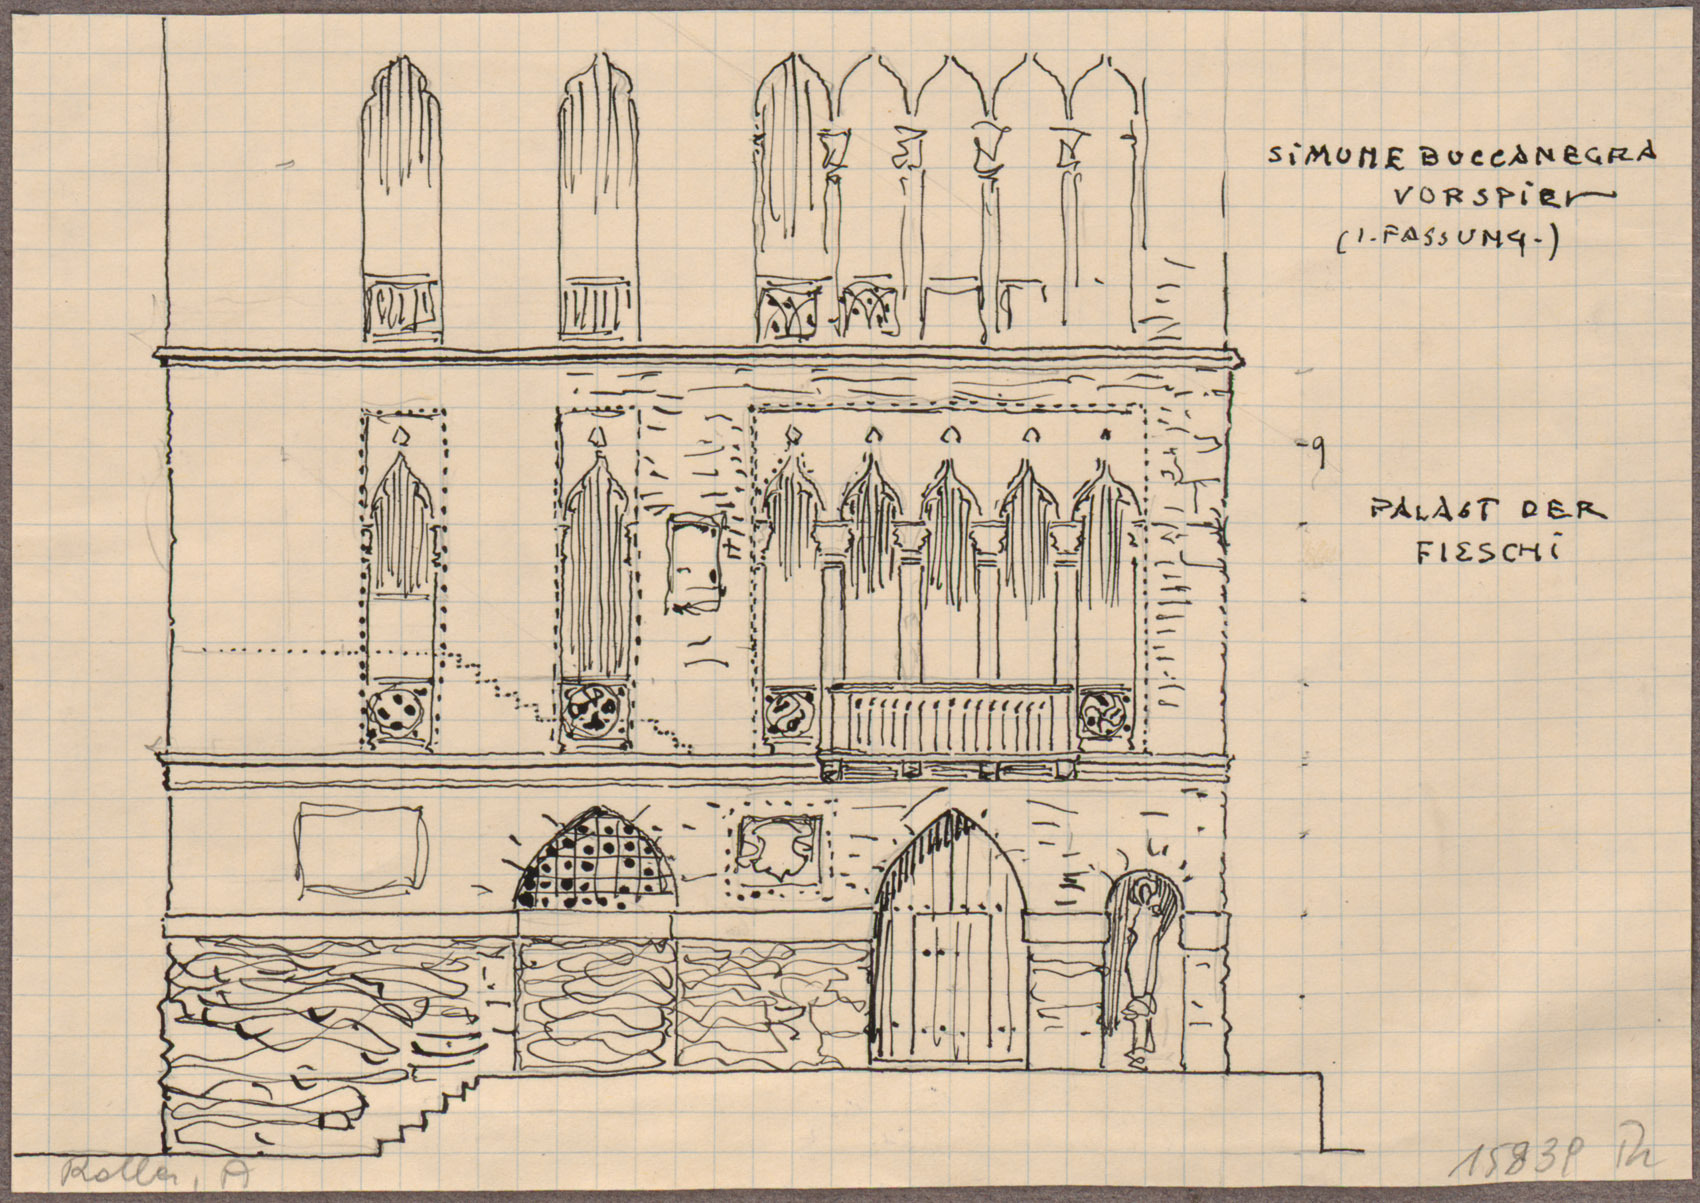 SIMONE BOCCANEGRA
VORSPIEL
(1. FASSUNG.)
9
PALAST DER
FIESCHI
Roller, A